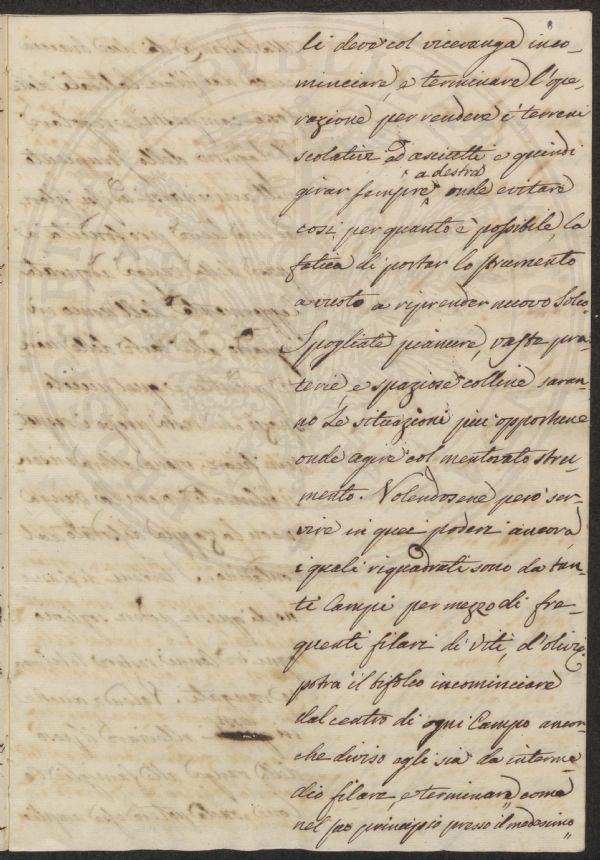 8
li deve col vicevanga inco-
minciare, e terminare l'ope-
razione per rendere i terreni
scolativi ed asciutti e quindi
a destra
girar sempre onde evitare
così per quanto è possibile, la
fatica di portar lo strumento
a vuoto a riprender nuovo solco.
Spogliate pianure, vaste pra-
terie, e spaziose colline saran-
no le situazioni più opportune
onde agire col mentovato stru-
mento. Volendosene però ser-
vire in quei poderi ancora,
i quali riquadrati sono da tan-
ti Campi per mezzo di fre-
quenti filari di viti, d'olivi,
potrà il bifolco incominciare
dal centro di ogni Campo ancor-
che diviso egli sia da interme-
dio filare, e terminare, come
nel suo principio presso il medesimo